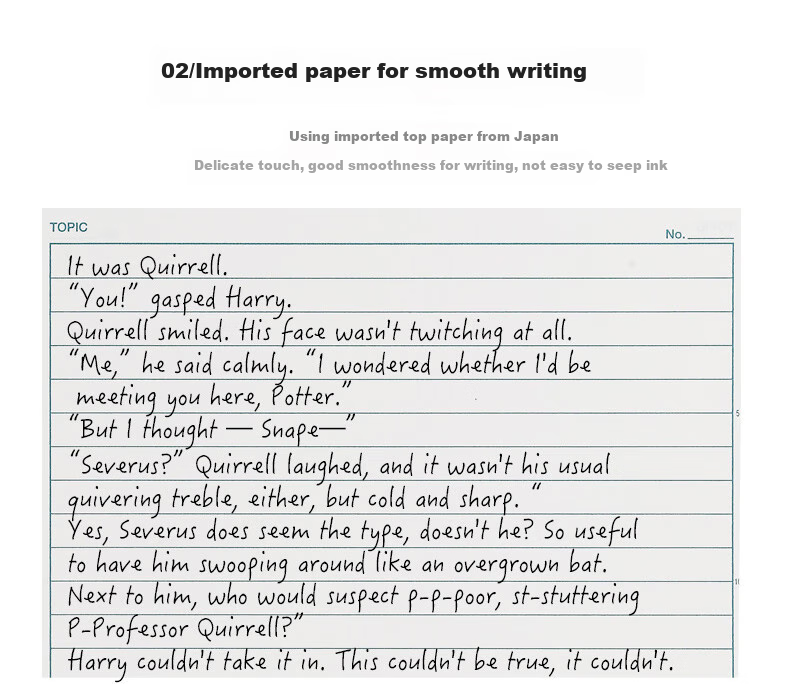 02/Imported paper for smooth writing
Using imported top paper from Japan
Delicate touch, good smoothness for writing, not easy to seep ink
TOPIC
No.
It was Quirrell.
“You!” gasped Harry.
Quirrell smiled. His face wasn't twitching at all.
“Me,” he said calmly. “I wondered whether I'd be
meeting you here, Potter.”
“But I thought — Snape—”
5
“Severus?” Quirrell laughed, and it wasn't his usual
quivering treble, either, but cold and sharp. “
Yes, Severus does seem the type, doesn't he? So useful
to have him swooping around like an overgrown bat.
10
Next to him, who would suspect p-p-poor, st-stuttering
P-Professor Quirrell?”
Harry couldn't take it in. This couldn't be true, it couldn't.